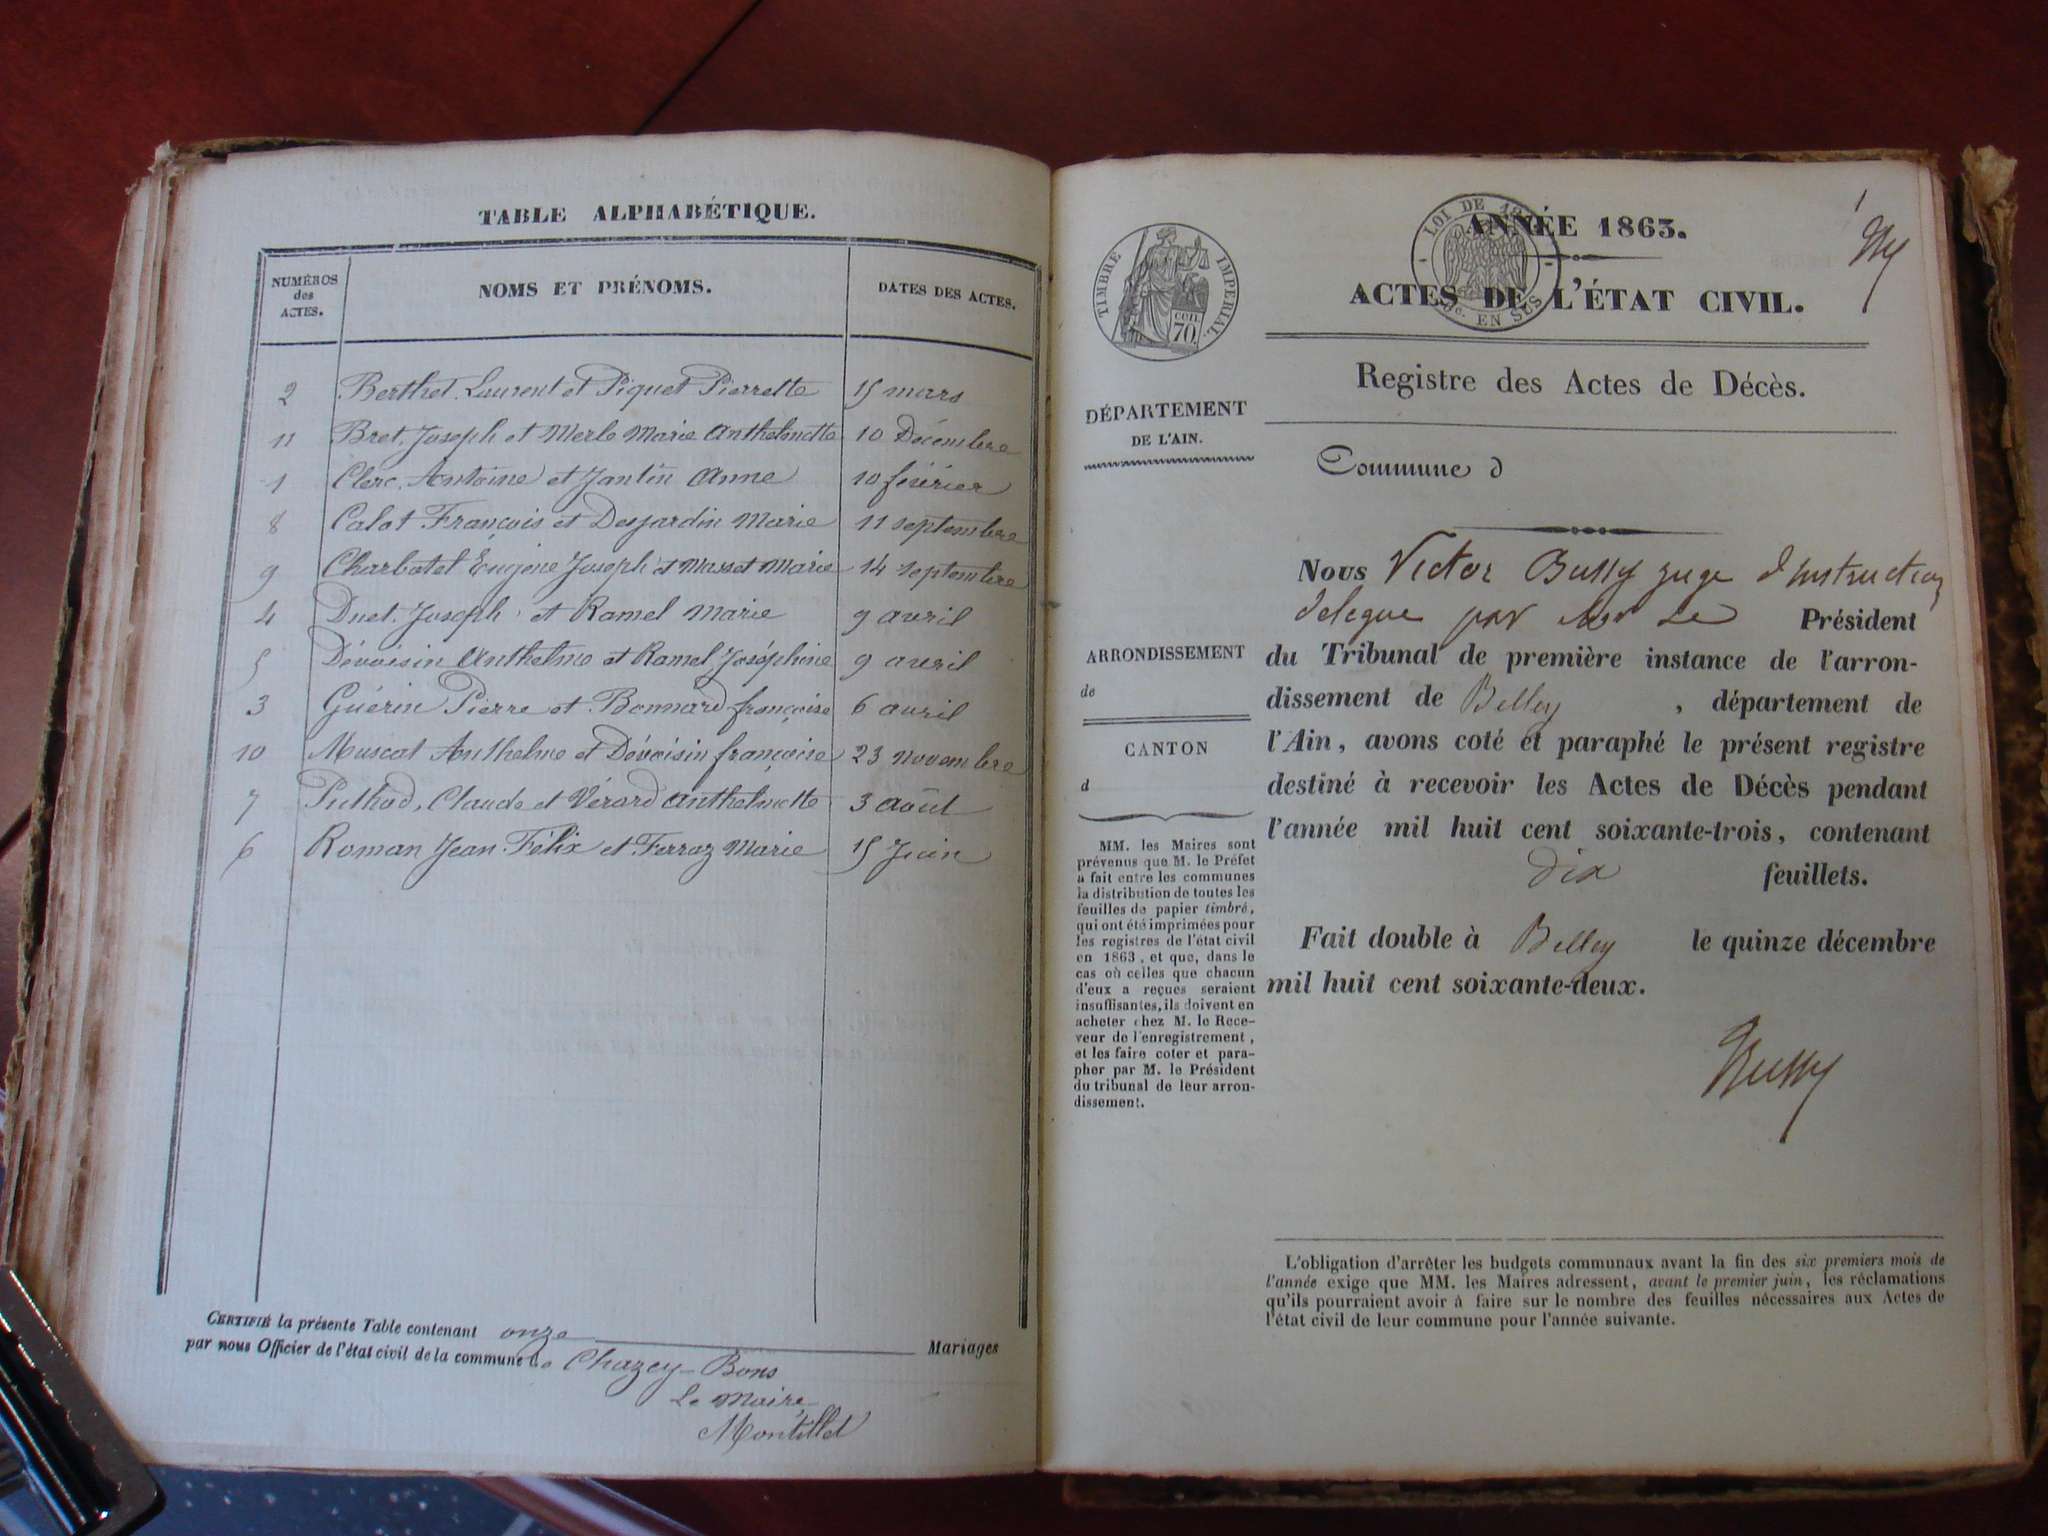 TABLE ALPHABÉTIQUE.
NUMÉROS
des
ACTES.
NOMS ET PRÉNOMS.
DATES DES ACTES.
2 Berthet Laurent et Piquet Pierrette 15 mars
11 Bret, Joseph et Merle Marie Anthelmette 10 Décembre
1 Clerc, Antoine et Jantin Anne 10 février
8 Calot François et Desjardin Marie 11 septembre
9 Charbotet Eugène Joseph et Masset Marie 14 septembre
4 Duet Joseph et Ramel Marie 9 avril
5 Dévoisin Anthelme et Ramel Joséphine 9 avril
3 Guérin Pierre et Bonnard françoise 6 avril
10 Muscat Anthelme et Dévoisin françoise 23 novembre
7 Puthod, Claude et Vérard Anthelmette 3 août
6 Roman Jean Félix et Ferraz Marie 15 Juin
CERTIFIÉ la présente Table contenant onze Mariages
par nous Officier de l'état civil de la commune de Chazey-Bons
Le Maire
Montillet
1
TIMBRE IMPÉRIAL.
CEN. 70.
LOI DE
c. EN SUS
ANNÉE 1863.
ACTES DE L'ÉTAT CIVIL.
Registre des Actes de Décès.
DÉPARTEMENT
DE L'AIN.
ARRONDISSEMENT
de
CANTON
d
MM. les Maires sont
prévenus que M. le Préfet
a fait entre les communes
la distribution de toutes les
feuilles de papier timbré,
qui ont été imprimées pour
les registres de l'état civil
en 1863, et que, dans le
cas où celles que chacun
d'eux a reçues seraient
insuffisantes, ils doivent en
acheter chez M. le Rece-
veur de l'enregistrement,
et les faire coter et para-
pher par M. le Président
du tribunal de leur arron-
dissement.
Commune d
Nous Victor Bussy juge d'instruction
delegue par Mr Le Président
du Tribunal de première instance de l'arron-
dissement de Belley , département de
l'Ain, avons coté et paraphé le présent registre
destiné à recevoir les Actes de Décès pendant
l'année mil huit cent soixante-trois, contenant
dix feuillets.
Fait double à Belley le quinze décembre
mil huit cent soixante-deux.
Bussy
L'obligation d'arrêter les budgets communaux avant la fin des six premiers mois de
l'année exige que MM. les Maires adressent, avant le premier juin, les réclamations
qu'ils pourraient avoir à faire sur le nombre des feuilles nécessaires aux Actes de
l'état civil de leur commune pour l'année suivante.